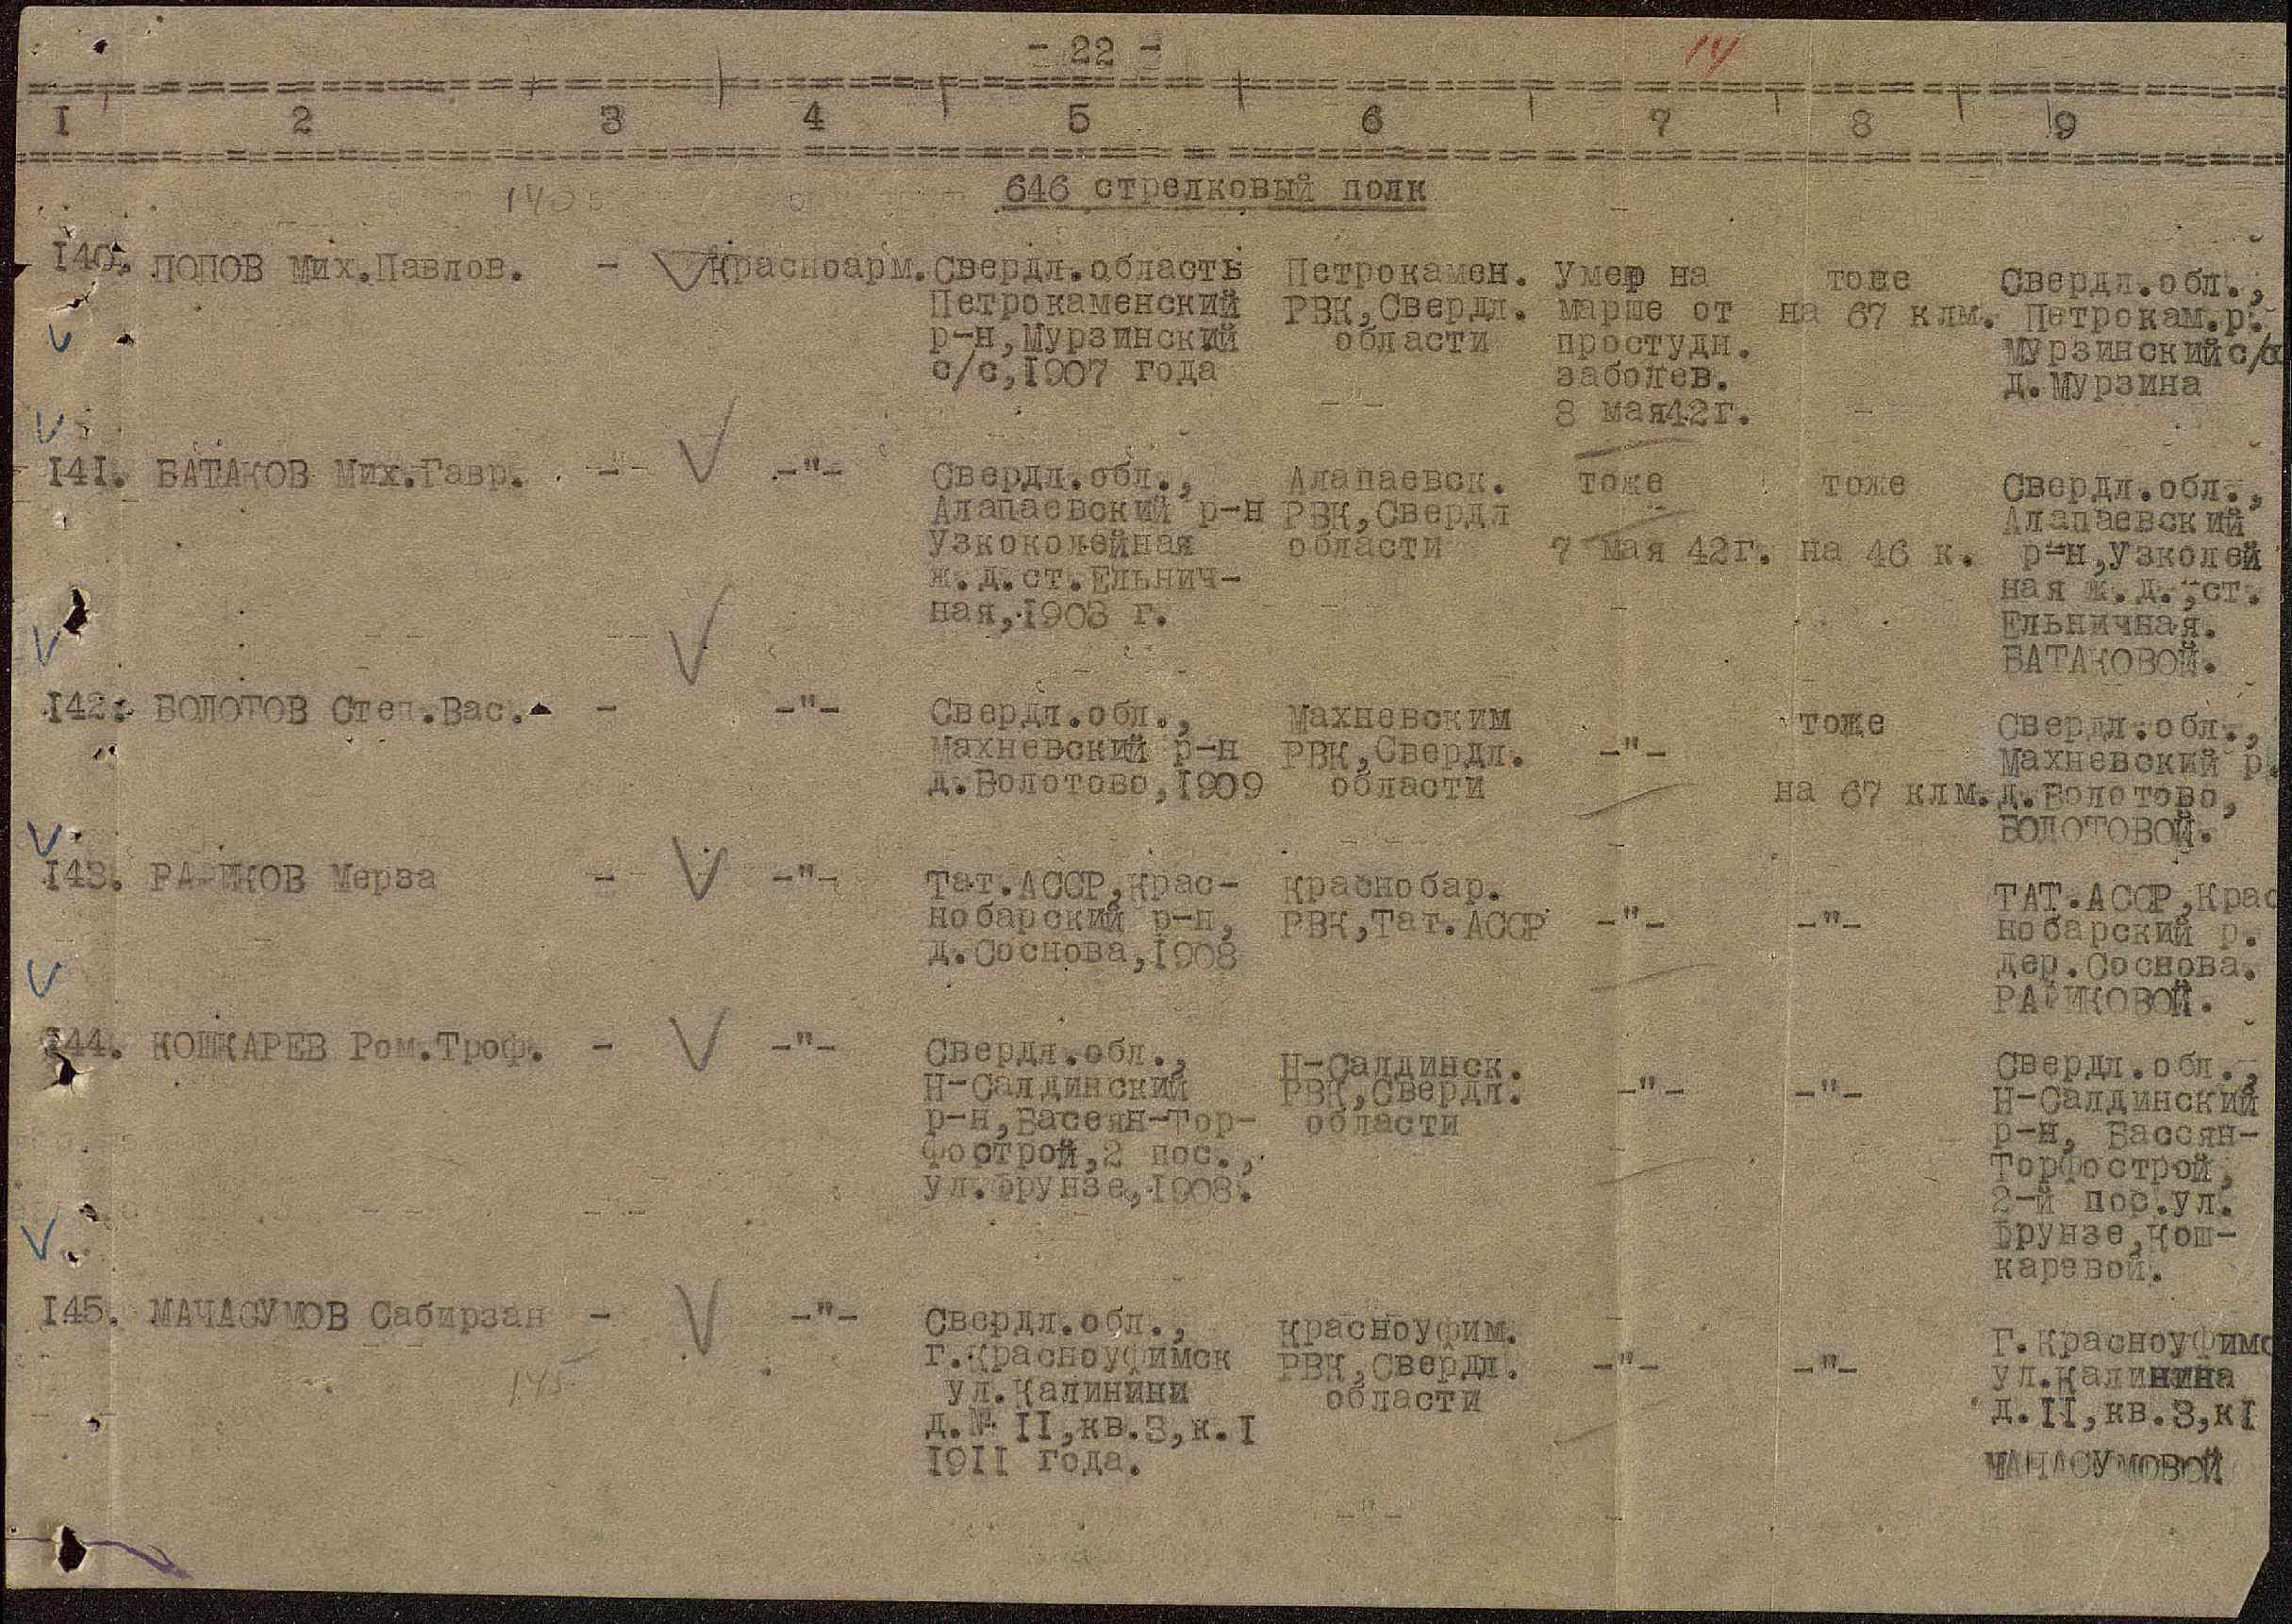 - 22 -
14
I 2 3 4 5 6 7 8 9
646 стрелковый полк
140
140. ПОПОВ Мих.Павлов. - Красноарм. Свердл.область Петрокамен. Умер на тоже Свердл.обл.,
Петрокаменский РВК,Свердл. марше от на 67 клм. Петрокам.р.
р-н,Мурзинский области простудн. Мурзинский с/с
с/с,1907 года заболев. д.Мурзина
8 мая42г.
141. БАТАКОВ Мих.Гавр. - -"- Свердл.обл., Алапаевск. тоже тоже Свердл.обл.,
Алапаевский р-н РВК,Свердл Алапаевский
узкоколейная области 7 мая 42г. на 46 к. р-н,узколей
ж.д.ст.Ельнич- ная ж.д.,ст.
ная,1903 г. Ельничная.
БАТАКОВОЙ.
142. БОЛОТОВ Степ.Вас. - -"- Свердл.обл., Махневским тоже Свердл.обл.,
Махневский р-н РВК,Свердл. -"- Махневский р.
д.Болотово,1909 области на 67 клм. д.Болотово,
БОЛОТОВОЙ.
143. Мерза - -"- Тат.АССР,Крас- Краснобар. ТАТ.АССР,Крас
нобарский р-н, РВК,Тат.АССР -"- -"- нобарский р.
д.Соснова,1908 дер.Соснова.
144. КОШКАРЕВ Ром.Троф. - -"- Свердл.обл., Н-Салдинск. Свердл.обл.,
Н-Салдинский РВК,Свердл. -"- -"- Н-Салдинский
р-н,Басеян-Тор- области р-н, Бассян-
фострой,2 пос., Торфострой,
ул.Фрунзе,1908. 2-й пос.ул.
Фрунзе,Кош-
каревой.
145. МАЧАСУМОВ Сабирзан - -"- Свердл.обл., Красноуфим. Г.Красноуфимс
г.Красноуфимск РВК,Свердл. -"- -"- ул.Калинина
145 ул.Калинини области д.II,кв.3,кI
д.№ II,кв.3,к.I МАНАСУМОВОЙ
19II года.
-"-